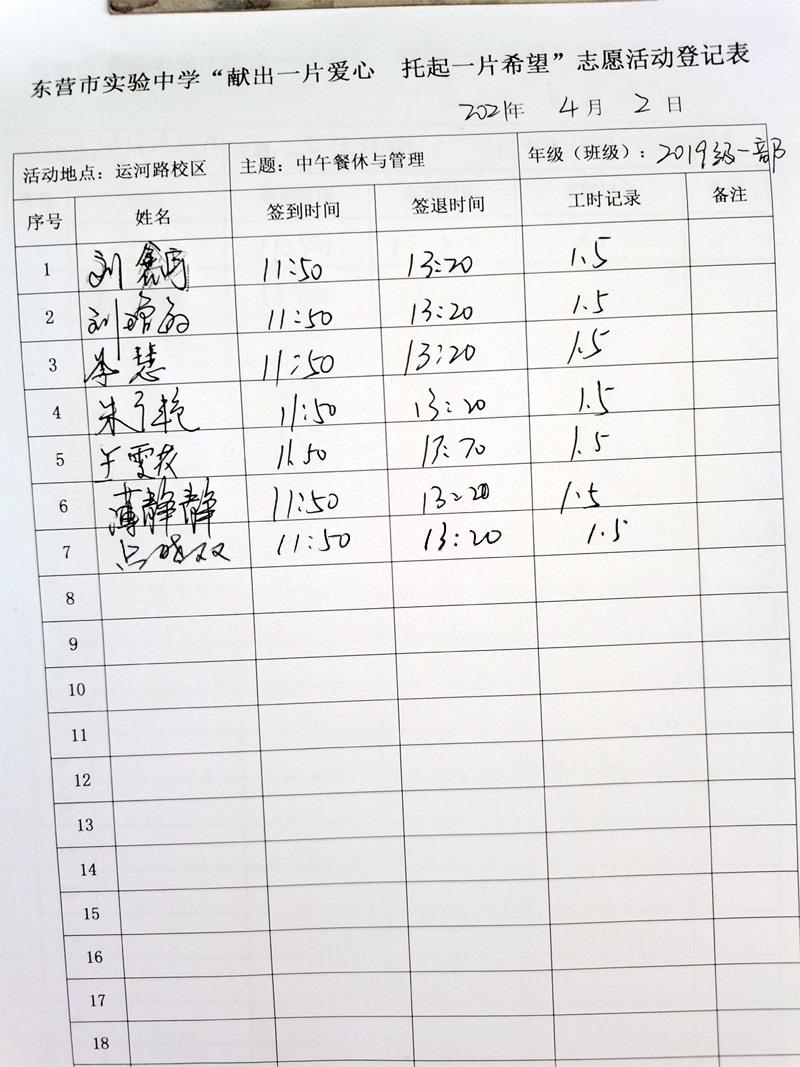 东营市实验中学“献出一片爱心 托起一片希望”志愿活动登记表
2021年 4月 2日
活动地点：运河路校区 主题：中午餐休与管理 年级（班级）：2019级一部
序号 姓名 签到时间 签退时间 工时记录 备注
1 刘鑫宇 11:50 13:20 1.5
2 刘增敏 11:50 13:20 1.5
3 李慧 11:50 13:20 1.5
4 朱艳 11:50 13:20 1.5
5 于雪 11:50 13:20 1.5
6 薄静静 11:50 13:20 1.5
7 吕晓双 11:50 13:20 1.5
8
9
10
11
12
13
14
15
16
17
18